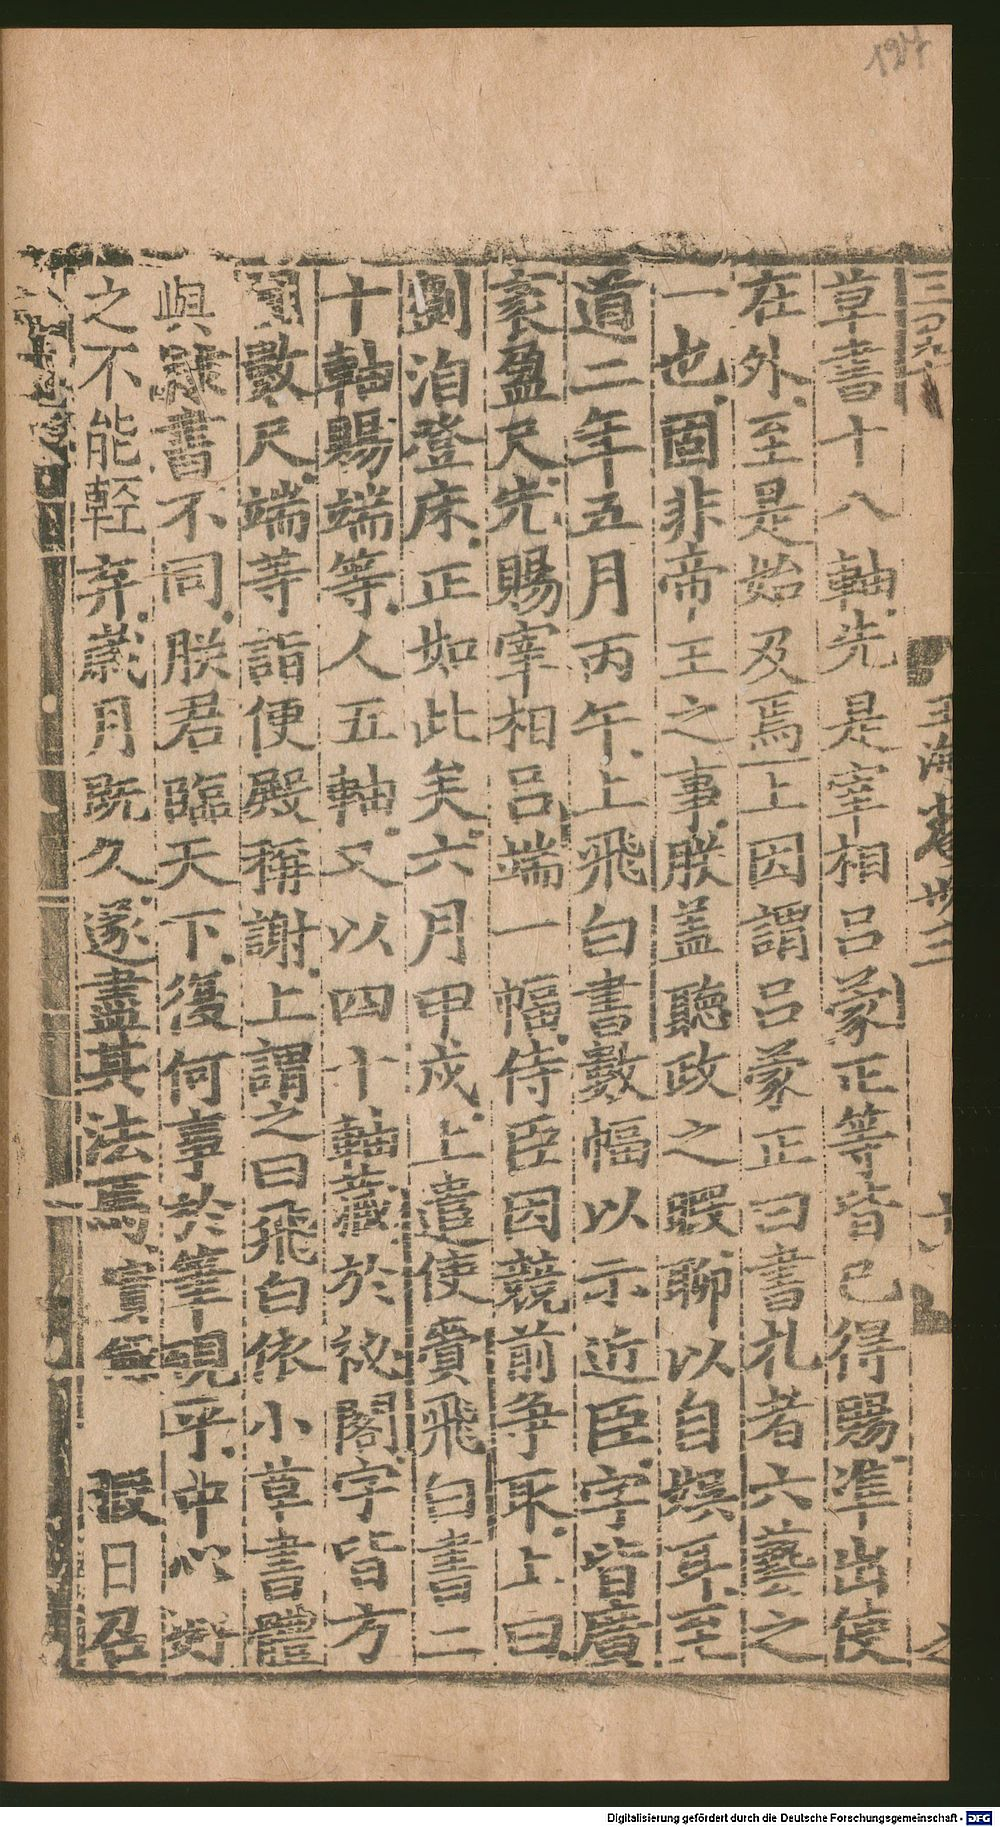 127
三百九
玉海卷卅三
十八
草書十八軸先是宰相呂蒙正等皆已得賜準出使
在外至是始及焉上因謂呂蒙正曰書札者六藝之
一也固非帝王之事朕蓋聽政之暇聊以自娱耳至
道二年五月丙午上飛白書數幅以示近臣字皆廣
袤盈尺先賜宰相呂端一幅侍臣因競前爭取上曰
劉洎登床正如此矣六月甲戍上遣使賫飛白書二
十軸賜端等人五軸又以四十軸藏於祕閣字皆方
圓數尺端等詣便殿稱謝上謂之曰飛白依小草書體
與隸書不同朕君臨天下復何事於筆硯乎中心好
之不能輕弃歲月既久遂盡其法焉實無 暇日召
Digitalisierung gefördert durch die Deutsche Forschungsgemeinschaft - DFG